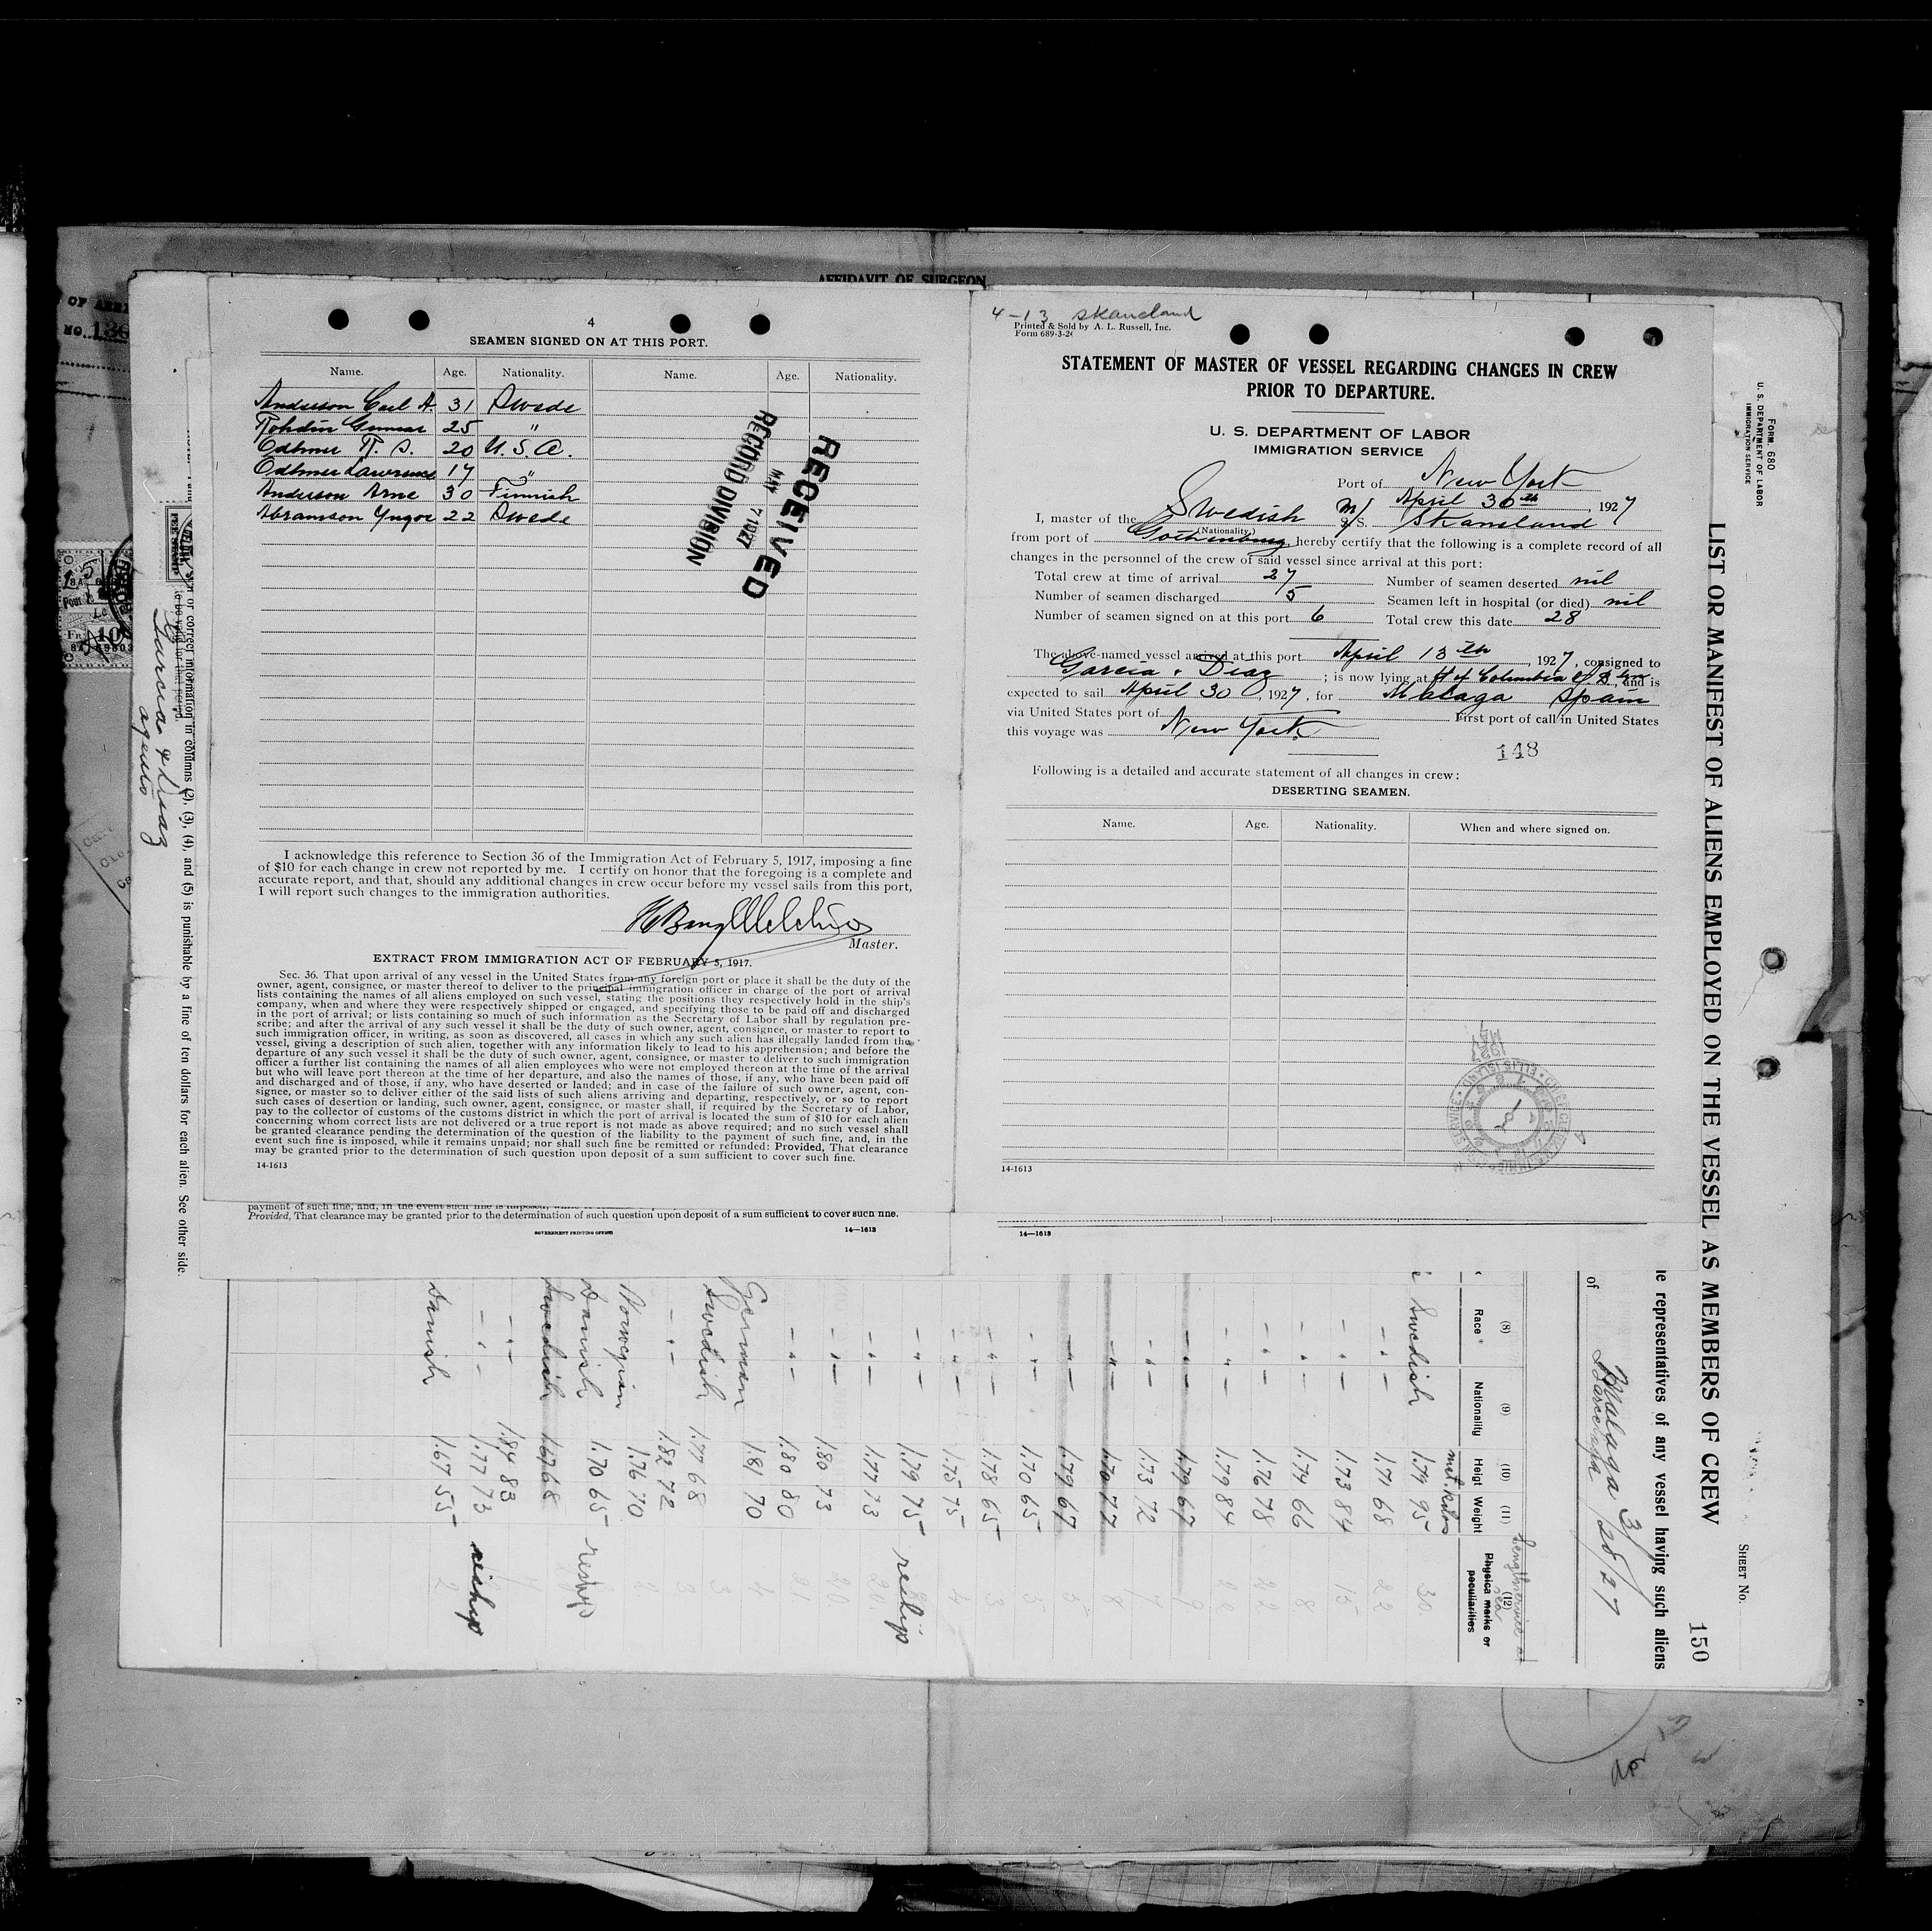 AFFIDAVIT OF SURGEON
4
SEAMEN SIGNED ON AT THIS PORT.
Name. Age. Nationality. Name. Age. Nationality.
Anderson Carl A. 31 Swede
Rohdin Gunnar 25 "
Edhner R. S. 20 U.S.A.
Edhner Lawrence 17 "
Anderson Arne 30 Finnish
Abramson Yngve 22 Swede
RECEIVED
MAY 7 1927
RECORD DIVISION
I acknowledge this reference to Section 36 of the Immigration Act of February 5, 1917, imposing a fine
of $10 for each change in crew not reported by me. I certify on honor that the foregoing is a complete and
accurate report, and that, should any additional changes in crew occur before my vessel sails from this port,
I will report such changes to the immigration authorities.
Master.
EXTRACT FROM IMMIGRATION ACT OF FEBRUARY 5, 1917.
Sec. 36. That upon arrival of any vessel in the United States from any foreign port or place it shall be the duty of the
owner, agent, consignee, or master thereof to deliver to the principal immigration officer in charge of the port of arrival
lists containing the names of all aliens employed on such vessel, stating the positions they respectively hold in the ship's
company, when and where they were respectively shipped or engaged, and specifying those to be paid off and discharged
in the port of arrival; or lists containing so much of such information as the Secretary of Labor shall by regulation pre-
scribe; and after the arrival of any such vessel it shall be the duty of such owner, agent, consignee, or master to report to
such immigration officer, in writing, as soon as discovered, all cases in which any such alien has illegally landed from the
vessel, giving a description of such alien, together with any information likely to lead to his apprehension; and before the
departure of any such vessel it shall be the duty of such owner, agent, consignee, or master to deliver to such immigration
officer a further list containing the names of all alien employees who were not employed thereon at the time of the arrival
but who will leave port thereon at the time of her departure, and also the names of those, if any, who have been paid off
and discharged and of those, if any, who have deserted or landed; and in case of the failure of such owner, agent, con-
signee, or master so to deliver either of the said lists of such aliens arriving and departing, respectively, or so to report
such cases of desertion or landing, such owner, agent, consignee, or master shall, if required by the Secretary of Labor,
pay to the collector of customs of the customs district in which the port of arrival is located the sum of $10 for each alien
concerning whom correct lists are not delivered or a true report is not made as above required; and no such vessel shall
be granted clearance pending the determination of the question of the liability to the payment of such fine, and, in the
event such fine is imposed, while it remains unpaid; nor shall such fine be remitted or refunded: Provided, That clearance
may be granted prior to the determination of such question upon deposit of a sum sufficient to cover such fine.
14-1613
payment of such fine, and, in the event such fine is imposed,
Provided, That clearance may be granted prior to the determination of such question upon deposit of a sum sufficient to cover such fine.
GOVERNMENT PRINTING OFFICE 14—1613
4-13 Skaneland
Printed & Sold by A. L. Russell, Inc.
Form 689-3-26
STATEMENT OF MASTER OF VESSEL REGARDING CHANGES IN CREW
PRIOR TO DEPARTURE.
U. S. DEPARTMENT OF LABOR
IMMIGRATION SERVICE
Port of New York
April 30th, 1927
I, master of the Swedish M/ S.S. Skaneland
(Nationality.)
from port of Gothenburg, hereby certify that the following is a complete record of all
changes in the personnel of the crew of said vessel since arrival at this port:
Total crew at time of arrival 27 Number of seamen deserted nil
Number of seamen discharged 5 Seamen left in hospital (or died) nil
Number of seamen signed on at this port 6 Total crew this date 28
The above-named vessel arrived at this port April 13th, 1927, consigned to
Garcia & Diaz; is now lying at ft of Columbia St Bkn, and is
expected to sail April 30, 1927, for Malaga Spain
via United States port of First port of call in United States
this voyage was New York
148
Following is a detailed and accurate statement of all changes in crew:
DESERTING SEAMEN.
Name. Age. Nationality. When and where signed on.
14-1613
14—1613
Form 680
U. S. DEPARTMENT OF LABOR
IMMIGRATION SERVICE
LIST OR MANIFEST OF ALIENS EMPLOYED ON THE VESSEL AS MEMBERS OF CREW
SHEET No.
150
e representatives of any vessel having such aliens
of Malaga 3/28/27
Barcelona
(8) (9) (10) (11) (12)
Race Nationality Heigt Weight Physical marks or peculiarities
met. kilos
Swedish 1.79 95 30
1.77 68 22
1.73 84 15
1.74 66 8
1.76 78 22
1.79 84 22
1.79 67 9
1.73 72 7
1.70 77 8
1.79 67 5
1.70 65 5
1.78 65 3
1.75 75 4
1.79 75 reship
1.77 73 20
1.80 73 20
1.80 80 21
German 1.81 70 4
Swedish 1.77 68 3
1.82 72 3
Norwegian 1.76 70 2
Danish 1.70 65 reship
Swedish 1.67 68
1.84 83
1.77 73 reship
Danish 1.67 55 2
or correct information in columns (2), (3), (4), and (5) is punishable by a fine of ten dollars for each alien. See other side.
Garcia & Diaz
agents